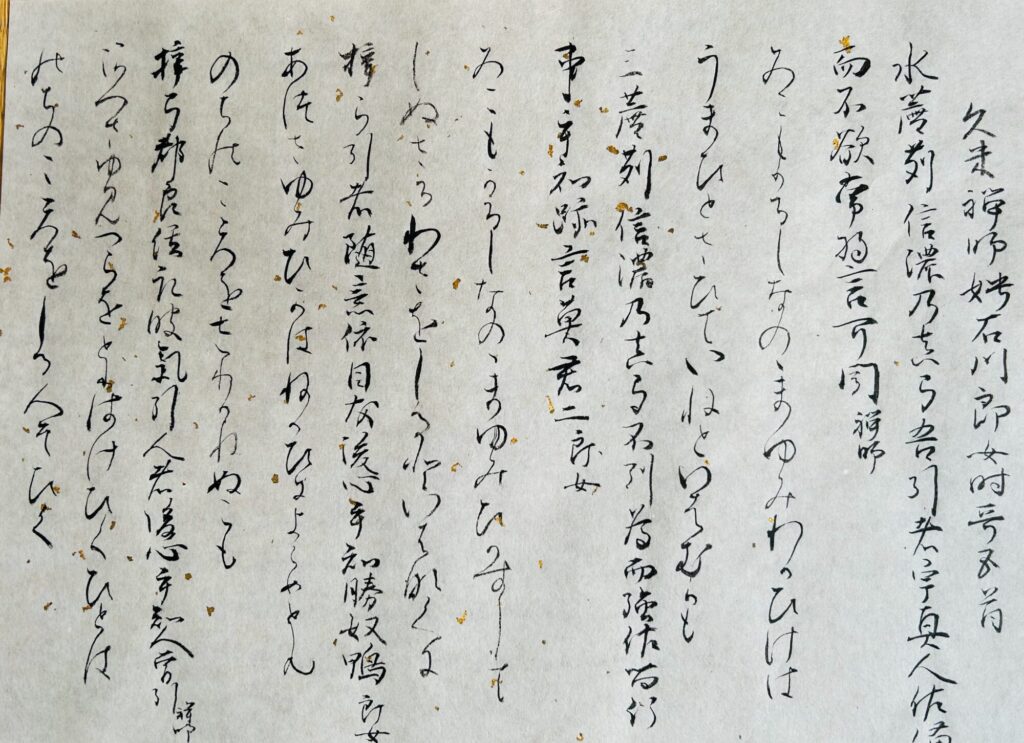 久米禅師娉石川郎女時哥五首
水薦苅信濃乃真弓吾引者宇真人佐備
而不欲常将言可聞 禅師
みこもかるしなのゝまゆみわかひけは
うまひとさひていねといはむかも
三薦苅信濃乃真弓不引為而強佐留行
事乎知跡言莫君二 郎女
みこもかるしなのゝまゆみひかすして
しぬさるわさをしるといはなくに
梓弓引者随意依目友後心乎知勝奴鴨 郎女
あつさゆみひかはねかひによらめとも
のちのこゝろをしりかねぬかも
梓弓都良絃取波氣引人者後心乎知人曽引 禅師
あつさゆみつらをとりはけひくひとは
のちのこゝろをしる人そひく